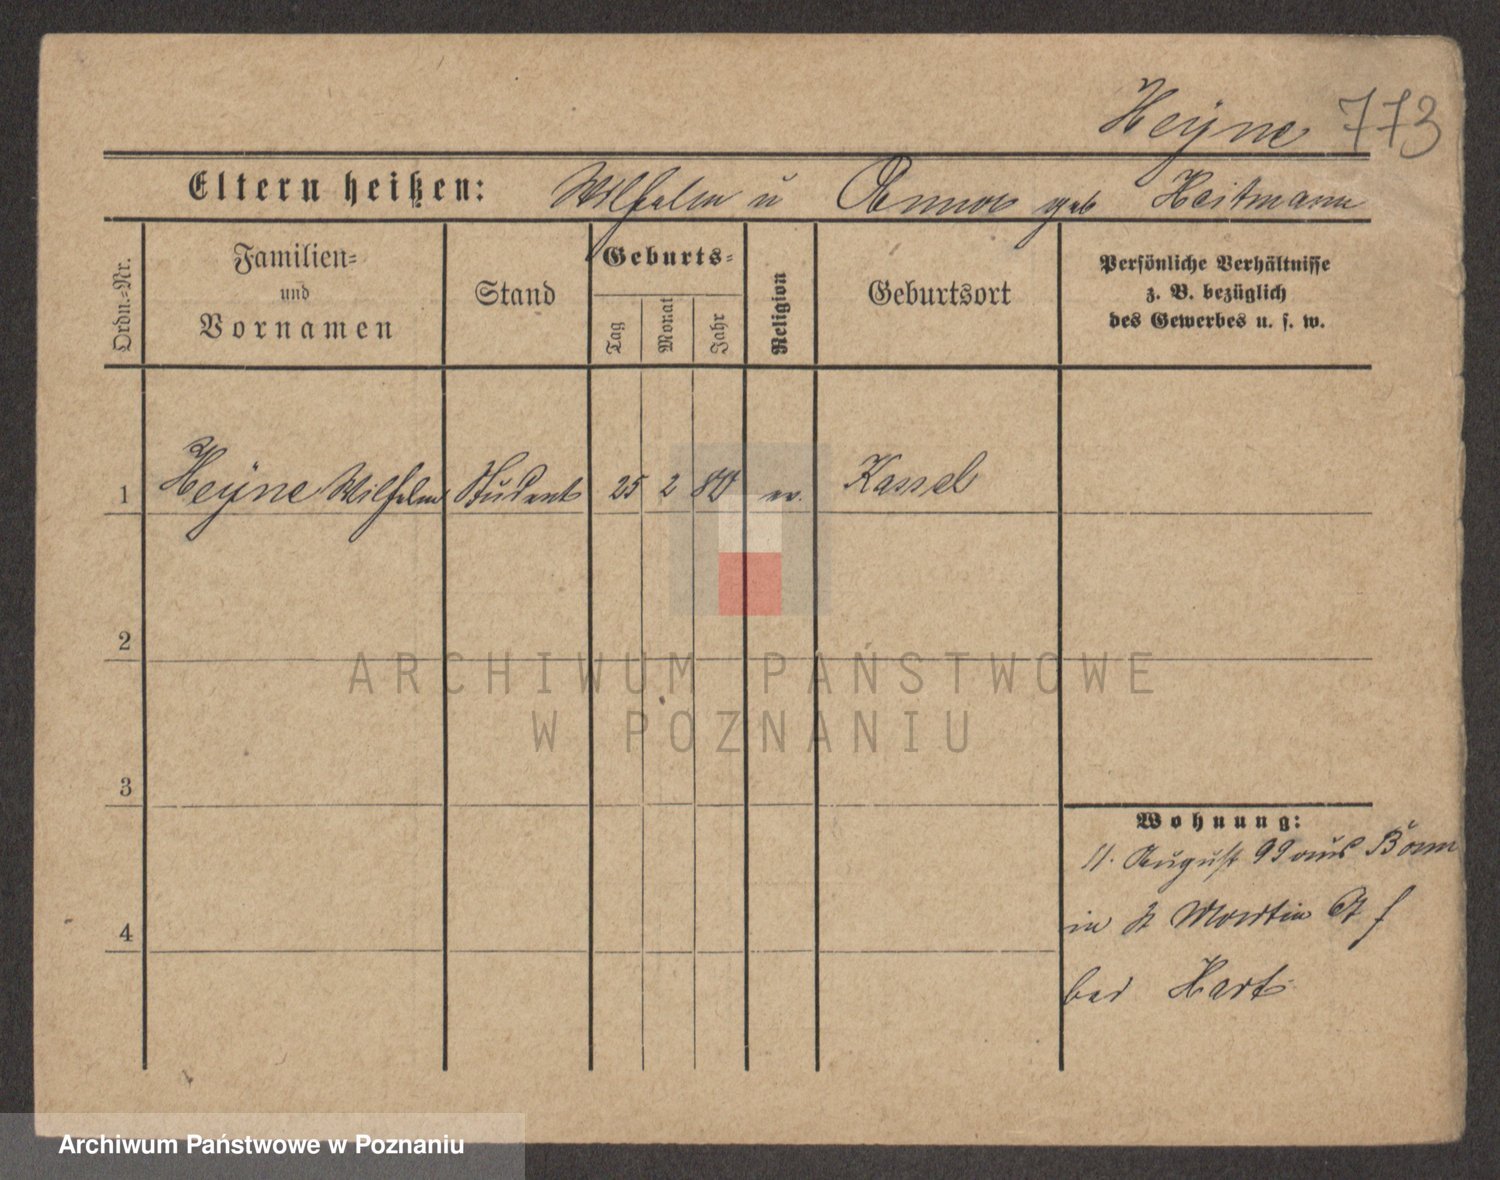 Heÿne 773
Eltern heißen: Wilhelm u Anna geb Heitmann
Ordn.=Nr.
Familien=
und
Vornamen
Stand
Geburts=
Tag
Monat
Jahr
Religion
Geburtsort
Persönliche Verhältnisse
z. B. bezüglich
des Gewerbes u. s. w.
1 Heÿne Wilhelm Student 25 2 80 ev. Kassel
2
3
4
Wohnung:
11. August 99 aus Bonn
in St Martin
bei Hart
ARCHIWUM PAŃSTWOWE
W POZNANIU
Archiwum Państwowe w Poznaniu